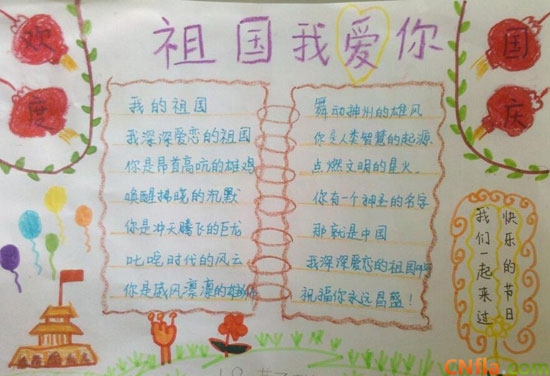 祖国我爱你
欢度
国庆
我的祖国
我深深爱恋的祖国
你是昂首高吭的雄鸡
唤醒拂晓的沉默
你是冲天腾飞的巨龙
叱咤时代的风云
你是威风凛凛的雄狮
舞动神州的雄风
你是人类智慧的起源
点燃文明的星火
你有一个神圣的名字
那就是中国
我深深爱恋的祖国啊
祝福你永远昌盛！
快乐的节日
我们一起来过
CNfla.com